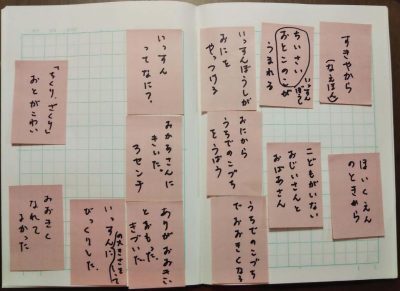 すきやから
(なえほん)
ほいくえん
のときから
ちいさい
おとこのこが
いっすん
ぼうし
うまれる
こどもがいない
おじいさんと
おばあさん
いっすんぼうしが
おにを
やっつける
おにから
うちでのこづち
をうばう
うちでのこづち
でおおきくなる
いっすん
ってなに?
おかあさんに
きいた。
3センチ
ありがおおきい
とおもった。
きづいた
いっすんに
びっくりした。
「ちくり、ざくり」
おとがこわい
おおきく
なれて
よかった